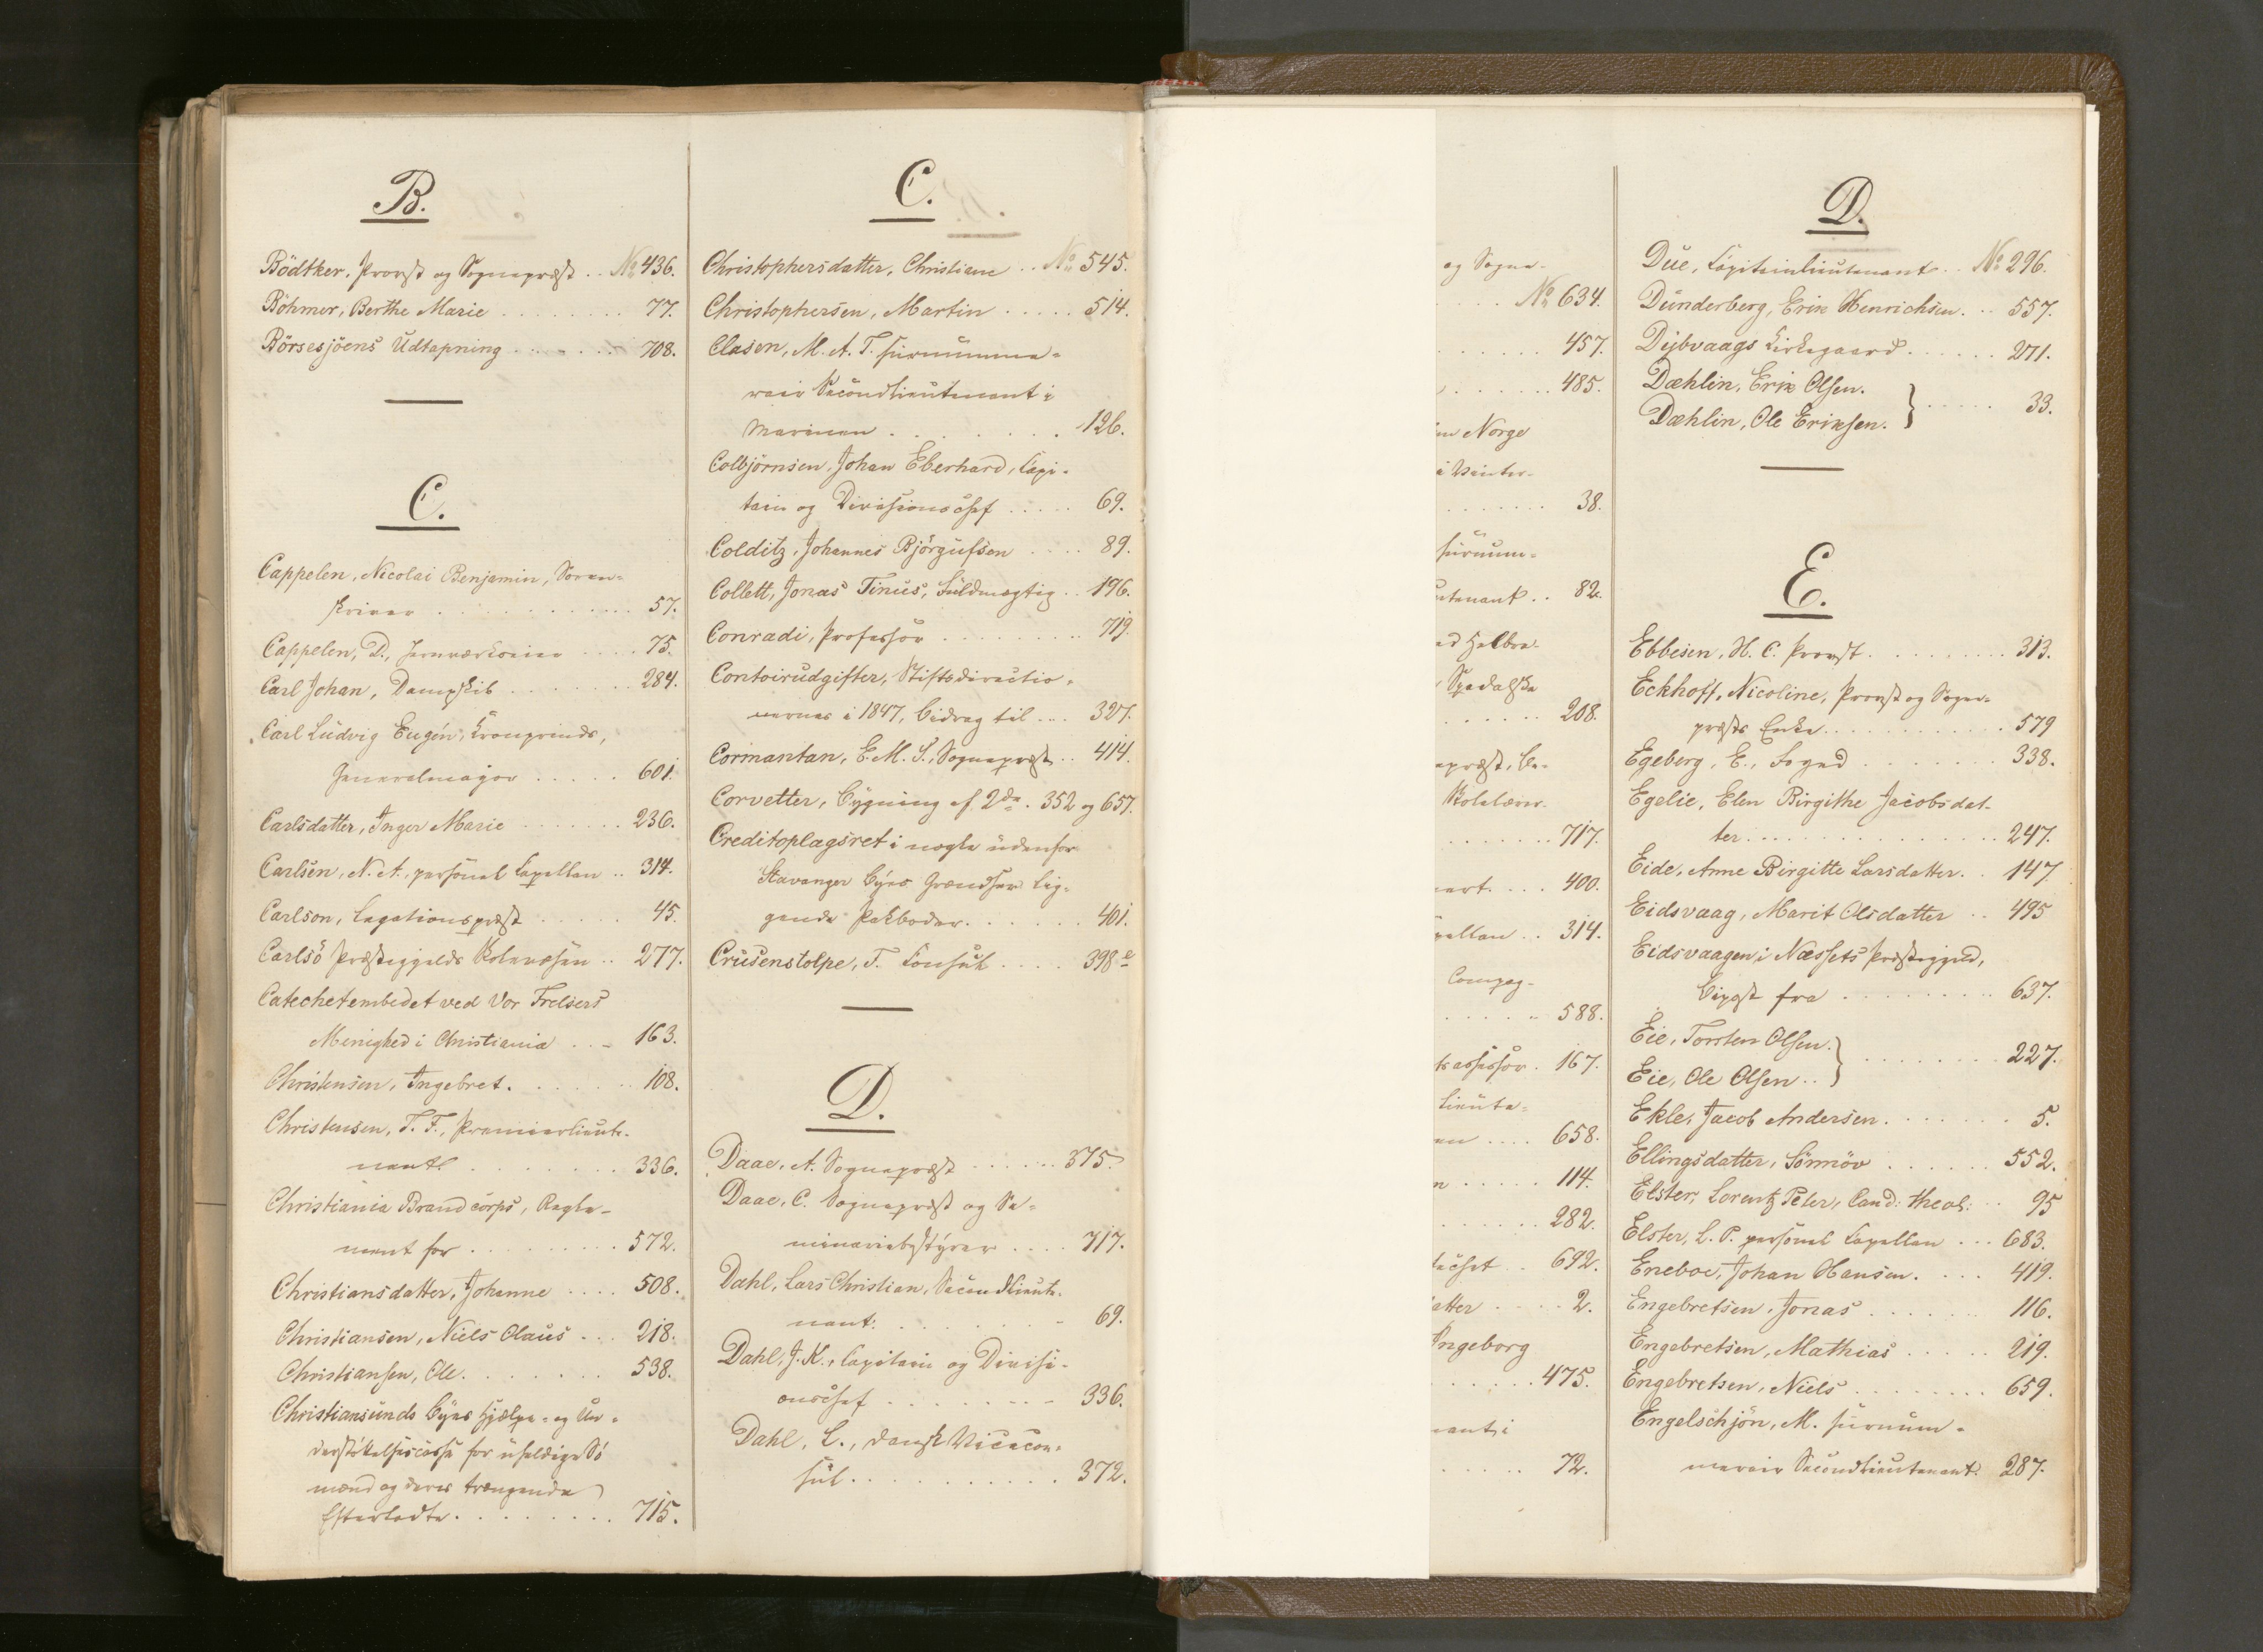 B.
Bödtker, Provst og Sognepræst .. No 436.
Böhmer, Berthe Marie ........ 77.
Börsesjöens Udtapning ....... 708.
C.
Cappelen, Nicolai Benjamin, Soren-
skriver ............ 57.
Cappelen, D., Jernværkseier .... 75.
Carl Johan, Dampskib ....... 284.
Carl Ludvig Eugén, Kronprinds,
Generalmajor ..... 601.
Carlsdatter, Inger Marie ....... 236.
Carlsen, N. A., personel Capellan .. 314.
Carlson, Legationspræst ..... 45.
Carlsö Præstegjelds Skolevæsen .. 277.
Catechetembedet ved Vor Frelsers
Menighed i Christiania ... 163.
Christensen, Ingebret. ....... 108.
Christensen, T. F., Premierlieute-
nant ........ 336.
Christiania Brandcorps, Regle-
ment for ......... 572.
Christiansdatter, Johanne .... 508.
Christiansen, Niels Olaus ... 218.
Christiansen, Ole ....... 538.
Christiansunds Byes Hjælpe- og Un-
derstöttelsescasse for uheldige Sö-
mænd og deres trængende
Efterladte ......... 715.
C.
Christophersdatter, Christiane .. No 545.
Christophersen, Martin ..... 514.
Clasen, M. A. T. surnumme-
rair Secondlieutenant i
Marinen ........ 126.
Colbjörnsen, Johan Eberhard, Capi-
tain og Divisionschef ..... 69.
Colditz, Johannes Björgufsen .... 89.
Collett, Jonas Tinus, Fuldmægtig .. 196.
Conradi, Professor ......... 719.
Contoirudgifter, Stiftsdirectio-
nernes i 1847, Bidrag til .... 327.
Cormantan, E. M. S., Sognepræst .. 414.
Corvetter, Bygning af 2de. 352 og 657.
Creditoplagsret i nogle udenfor
Stavanger Byes Grændser lig-
gende Pakboder. ...... 401.
Crusenstolpe, T. Consul .... 398 e
D.
Daae, A. Sognepræst ...... 375.
Daae, C. Sognepræst og Se-
minariebestyrer .... 717.
Dahl, Lars Christian, Secondlieute-
nant ........ 69.
Dahl, J. K., Capitain og Divisi-
onschef ........ 336.
Dahl, L., dansk Vicecon-
sul .......... 372.
og Sogne-
.... No 634.
...... 457.
...... 485.
Norge
i Vinter-
....... 38.
surnum-
utenant .. 82.
Spedalske
...... 208.
epræst, Be-
Skolelærer-
....... 717.
.... 400.
pellan .. 314.
Compag-
..... 588.
sassessor . 167.
Lieute-
en .... 658.
n ..... 114.
...... 282.
.. 692.
atter .... 2.
Ingeborg
...... 475.
nant i
..... 72.
D.
Due, Capitainlieutenant .. No 296.
Dunderberg, Erik Henrichsen. .. 557.
Dybvaags Kirkegaard ...... 271.
Dæhlin, Erik Olsen.
Dæhlin, Ole Eriksen. } ..... 33.
E.
Ebbesen, H. C. Provst. ........ 313.
Eckhoff, Nicoline, Provst og Sogne-
præsts Enke ............ 579
Egeberg, E., Foged ....... 338.
Egelie, Elen Birgithe Jacobsdat-
ter .............. 247.
Eide, Anne Birgitte Larsdatter. . 147
Eidsvaag, Marit Olsdatter .. 495
Eidsvaagen i Næssets Præstegjeld,
Bygst fra ......... 637.
Eie, Torsten Olsen.
Eie, Ole Olsen .. } ........ 227.
Ekle, Jacob Andersen. ....... 5.
Ellingsdatter, Sönnöv ...... 552.
Elster, Lorentz Peter, Cand: theol: .. 95
Elster, L. P. personel Capellan ... 683.
Eneboe, Johan Hansen. .... 419.
Engebretsen, Jonas ....... 116.
Engebretsen, Mathias ..... 219.
Engebretsen, Niels ........ 659.
Engelschjön, M. surnum-
merair Secondlieutenant. 287.